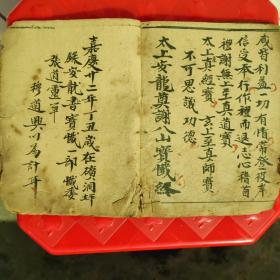 咸皆利益一切有情常登彼岸
信受奉行作禮而退志心稽首
禮謝無上至真道寶
太上真經寶 玄上至真師寶
不可思議功德
太上安龍奠謝八山寶懺終
嘉慶廿二年丁丑歲在
錄安龍書寶懺一部
張道
穆道興